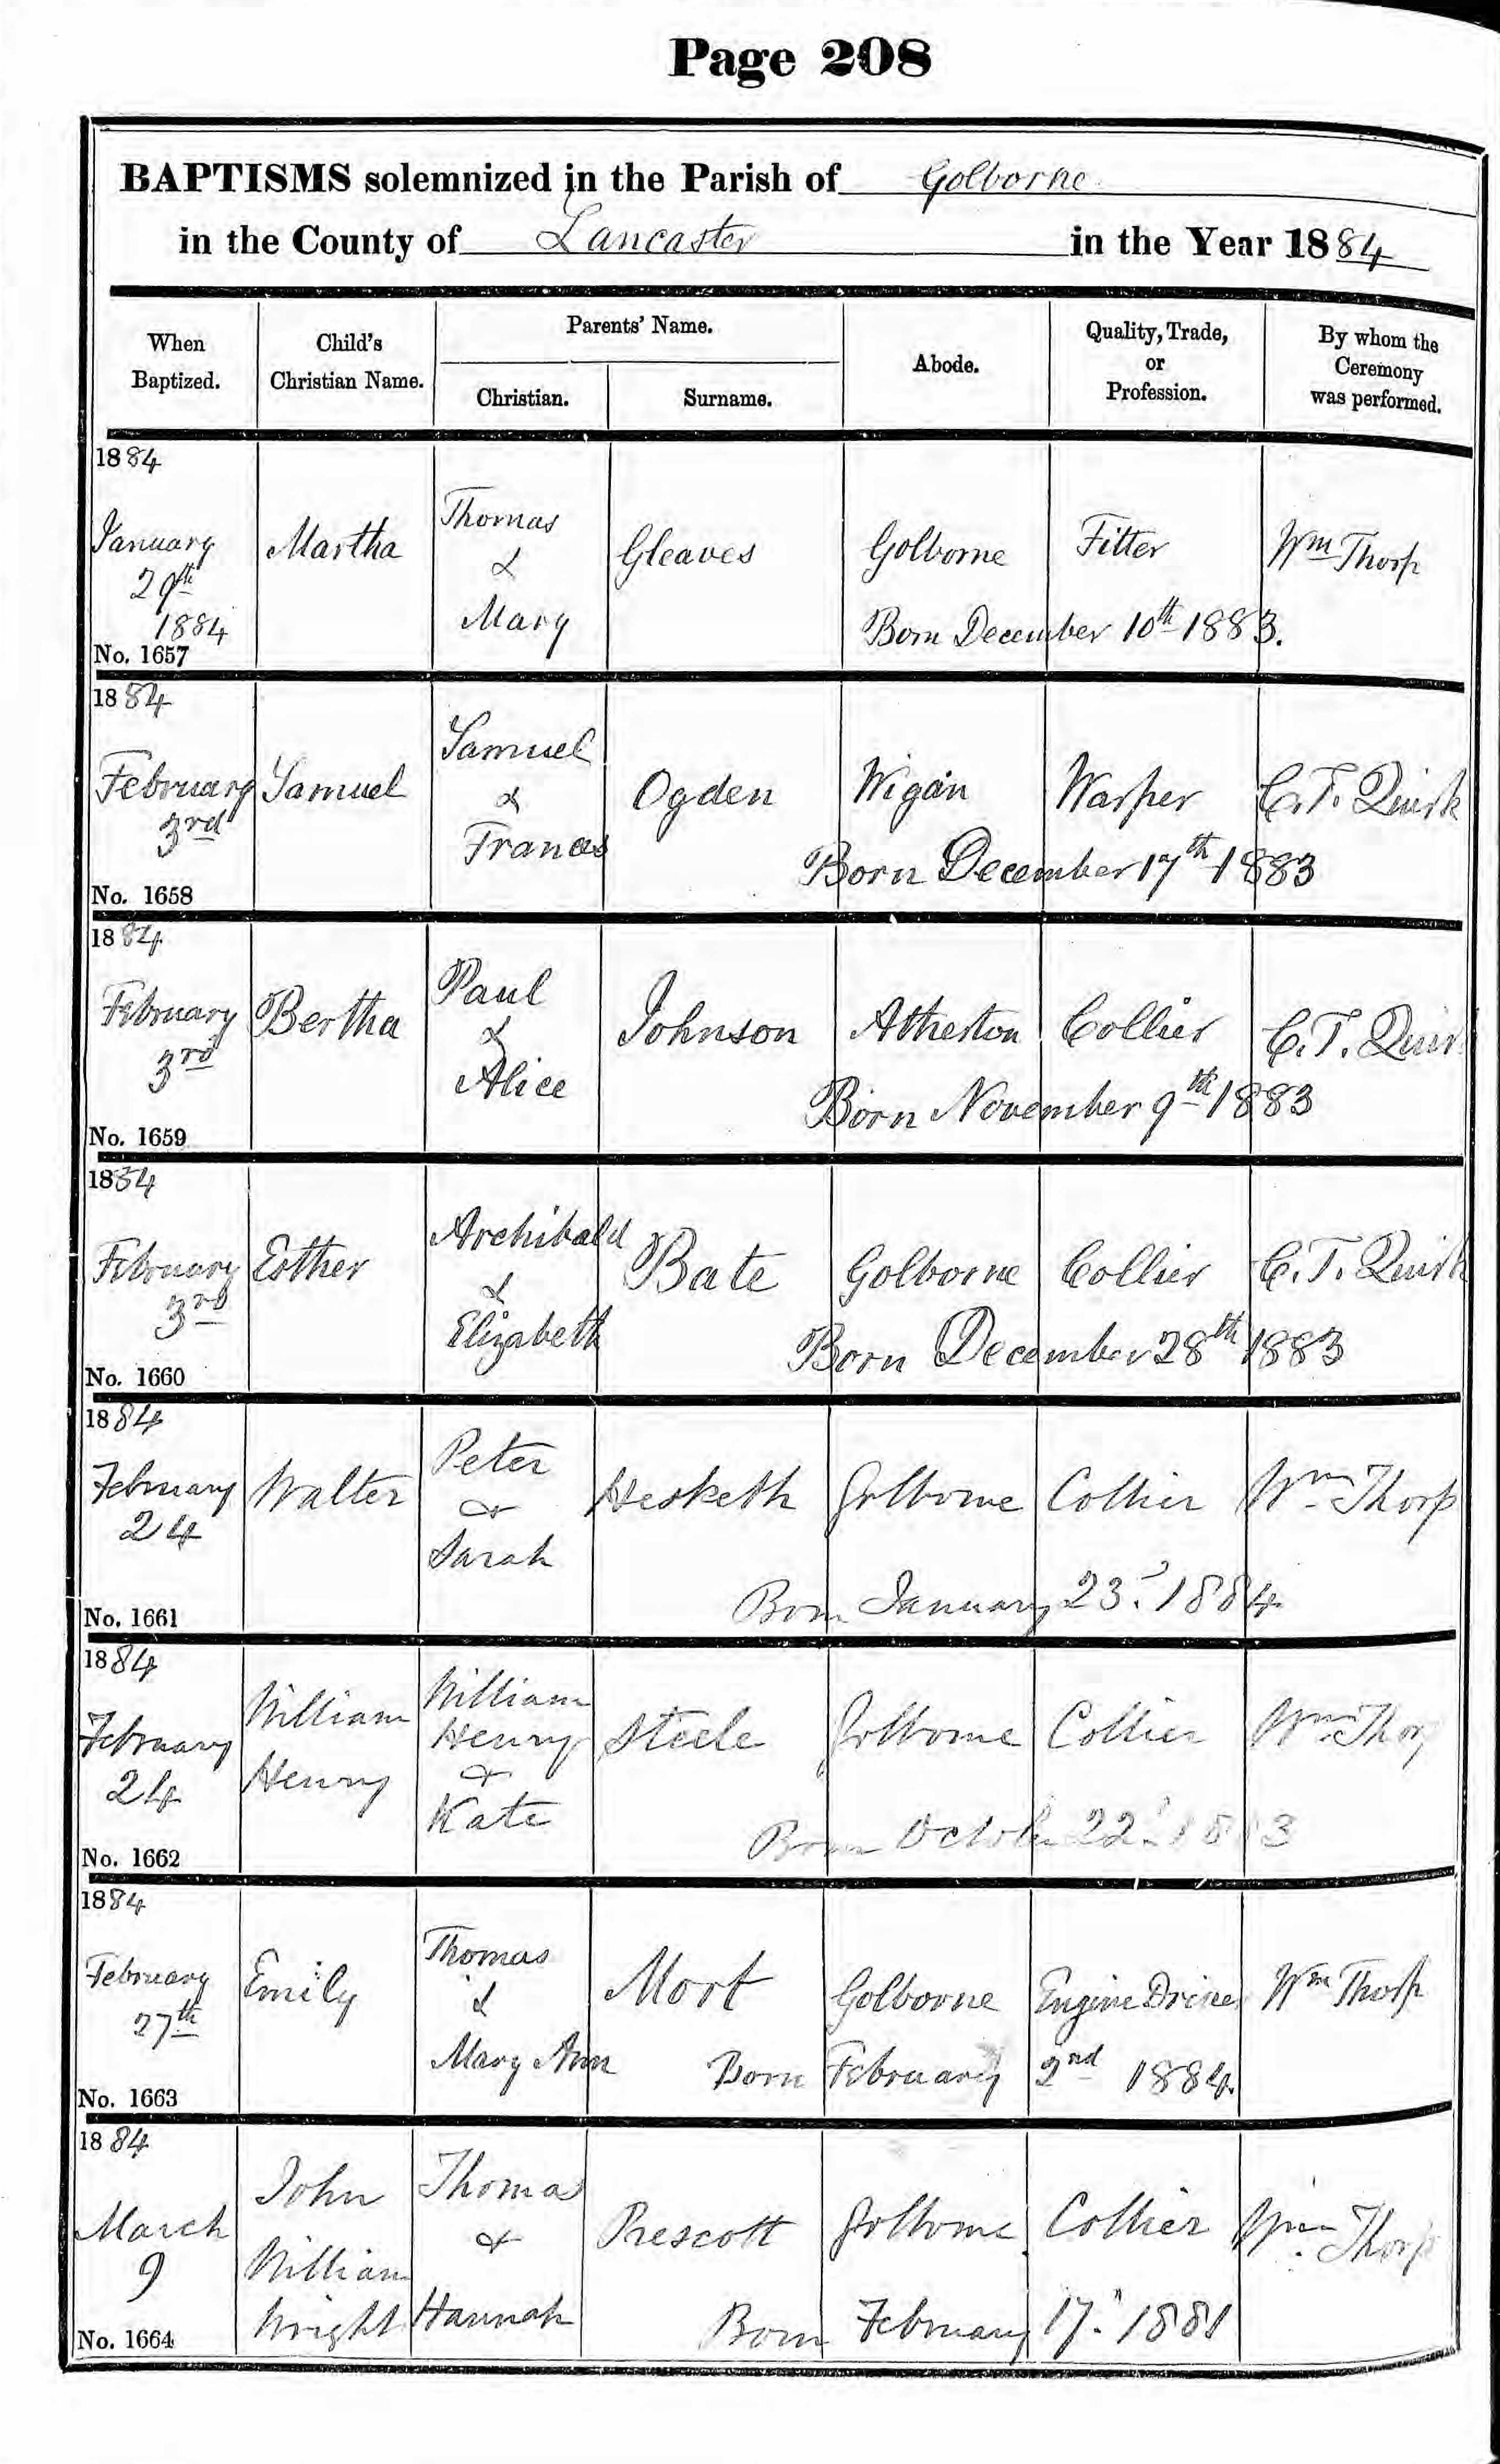 Page 208
BAPTISMS solemnized in the Parish of Golborne
in the County of Lancaster in the Year 1884
When Baptized.
Child's Christian Name.
Parents' Name.
Christian.
Surname.
Abode.
Quality, Trade, or Profession.
By whom the Ceremony was performed.
1884
January 29th 1884
No. 1657
Martha
Thomas & Mary
Gleaves
Golborne
Fitter
Wm Thorp
Born December 10th 1883.
1884
February 3rd
No. 1658
Samuel
Samuel & Frances
Ogden
Wigan
Warper
C. T. Quirk
Born December 17th 1883
1884
February 3rd
No. 1659
Bertha
Paul & Alice
Johnson
Atherton
Collier
C. T. Quirk
Born November 9th 1883
1884
February 3rd
No. 1660
Esther
Archibald & Elizabeth
Bate
Golborne
Collier
C. T. Quirk
Born December 28th 1883
1884
February 24
No. 1661
Walter
Peter & Sarah
Hesketh
Golborne
Collier
Wm Thorp
Born January 23. 1884.
1884
February 24
No. 1662
William Henry
William Henry & Kate
Steele
Golborne
Collier
Wm Thorp
Born October 22. 1883
1884
February 27th
No. 1663
Emily
Thomas & Mary Ann
Mort
Golborne
Engine Driver
Wm Thorp
Born February 2nd 1884.
1884
March 9
No. 1664
John William Wright
Thomas & Hannah
Prescott
Golborne
Collier
Wm Thorp
Born February 17. 1881